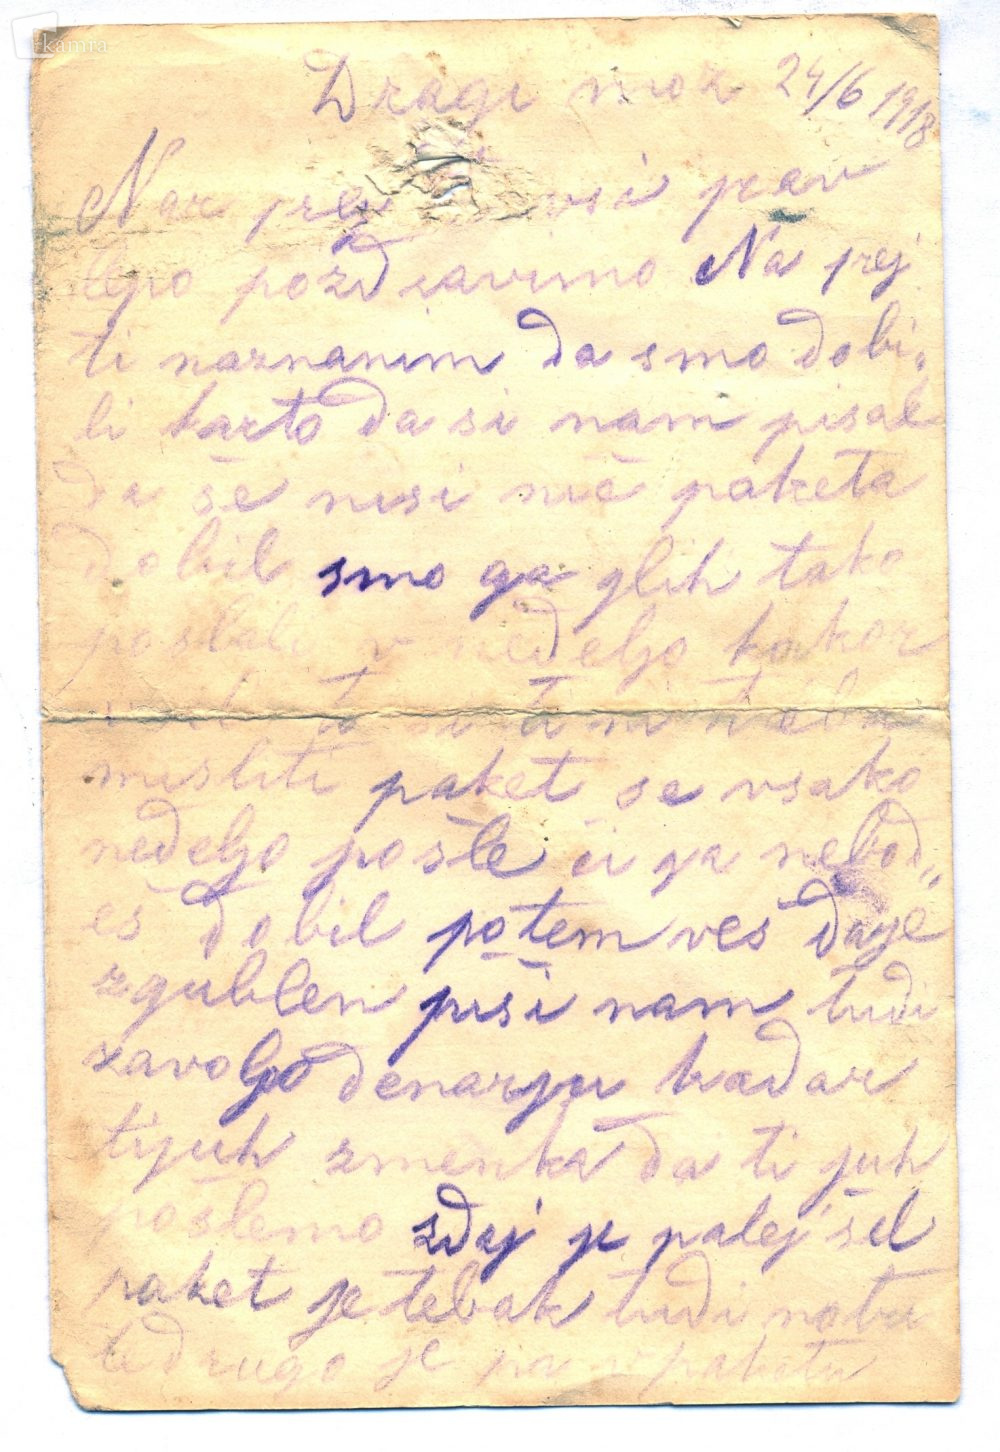 kamra
Dragi mož 24/6 1918
Nar prej vsi prav
lepo pozdravimo Na prej
ti naznanim da smo dobi„
li karto da si nam pisal
da še nisi nič paketa
dobil smo ga glih tako
poslali v nedeljo kakor
ti
misliti paket se vsako
nedeljo pošle či ga nebod„
eš dobil potem veš daje
zgublen piši nam tudi
zavoljo denarju kadar
tijuh zmenka da ti juh
pošlemo zdaj je palej šel
paket je tebak tudi notri
te drugo je pa v paketu